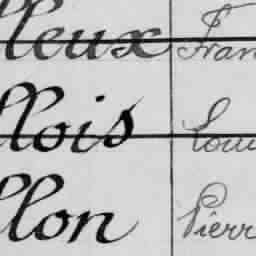 lleux Fran
llois Loui
llon Pierr